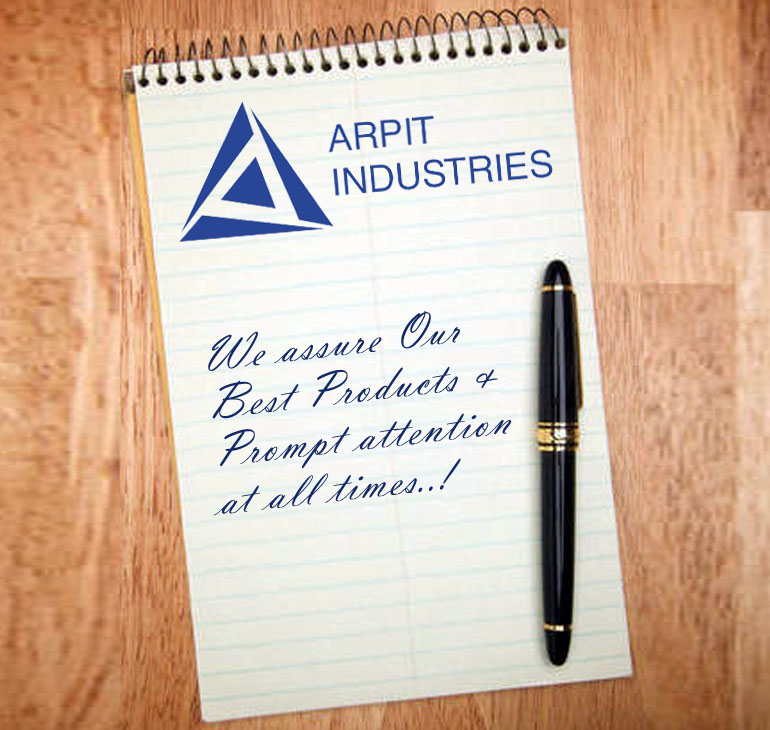 ARPIT
INDUSTRIES
We assure Our
Best Products &
Prompt attention
at all times..!